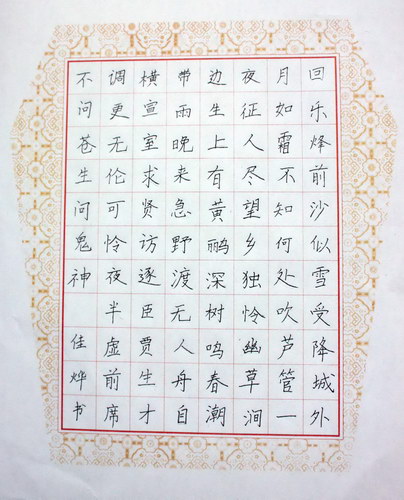 回乐烽前沙似雪受降城外
月如霜不知何处吹芦管一
夜征人尽望乡独怜幽草涧
边生上有黄鹂深树鸣春潮
带雨晚来急野渡无人舟自
横宣室求贤访逐臣贾生才
调更无伦可怜夜半虚前席
不问苍生问鬼神 佳烨书